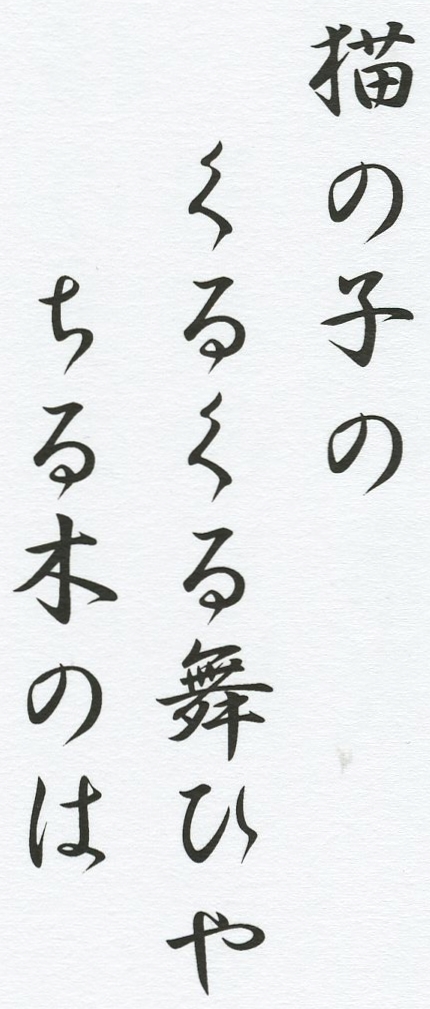 猫の子の
くるくる舞ひや
ちる木のは